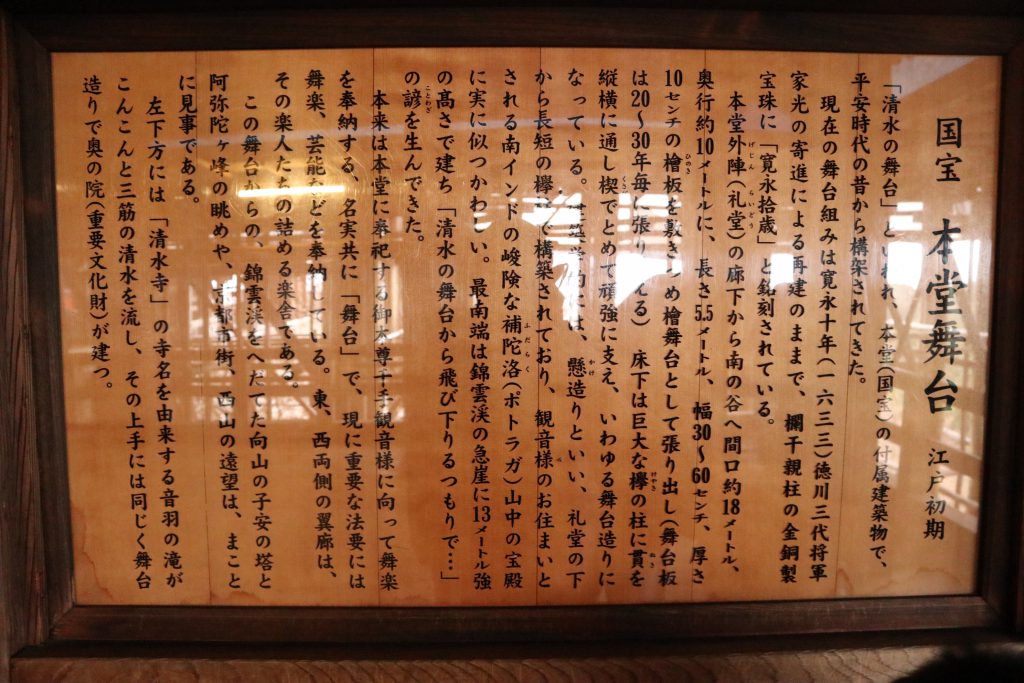 国宝 本堂舞台 江戸初期
「清水の舞台」といわれ、本堂(国宝)の付属建築物で、
平安時代の昔から構架されてきた。
現在の舞台組みは寛永十年(一六三三)徳川三代将軍
家光の寄進による再建のままで、欄干親柱の金銅製
宝珠に「寛永拾歳」と鋳刻されている。
本堂外陣(礼堂)の廊下から南の谷へ間口約18メートル、
奥行約10メートルに、長さ5.5メートル、幅30〜60センチ、厚さ
10センチの檜板を敷きつめ檜舞台として張り出し(舞台板
は20〜30年毎に張りかえる)床下は巨大な欅の柱に貫を
縦横に通し楔でとめて頑強に支え、いわゆる舞台造りに
なっている。建築学的には、懸造りといい、礼堂の下
から長短の欅で構築されており、観音様のお住まいと
される南インドの峻険な補陀洛(ポトラガ)山中の宝殿
に実に似つかわしい。最南端は錦雲渓の急崖に13メートル強
の高さで建ち「清水の舞台から飛び下りるつもりで…」
の諺を生んできた。
本来は本堂に奉祀する御本尊千手観音様に向って舞楽
を奉納する、名実共に「舞台」で、現に重要な法要には
舞楽、芸能などを奉納している。東、西両側の翼廊は、
その楽人たちの詰める楽舎である。
この舞台からの、錦雲渓をへだてた向山の子安の塔と
阿弥陀ヶ峰の眺めや、京都市街、西山の遠望は、まこと
に見事である。
左下方には「清水寺」の寺名を由来する音羽の滝が
こんこんと三筋の清水を流し、その上手には同じく舞台
造りで奥の院(重要文化財)が建つ。